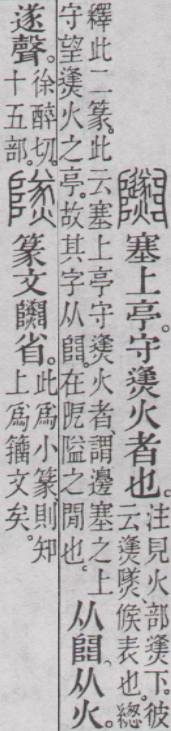 𨽵 塞上亭。守㷭火者也。
注見火部㷭下。彼
云㷭㸂候表也。緫
釋此二篆。此云塞上亭守㷭火者、謂邊塞之上
守望㷭火之亭。故其字从𨺅。在阸隘之閒也。
从𨺅、从火。
遂聲。
徐醉切。
十五部。
䥙 篆文𨽵省。
此爲小篆、則知
上爲籒文矣。